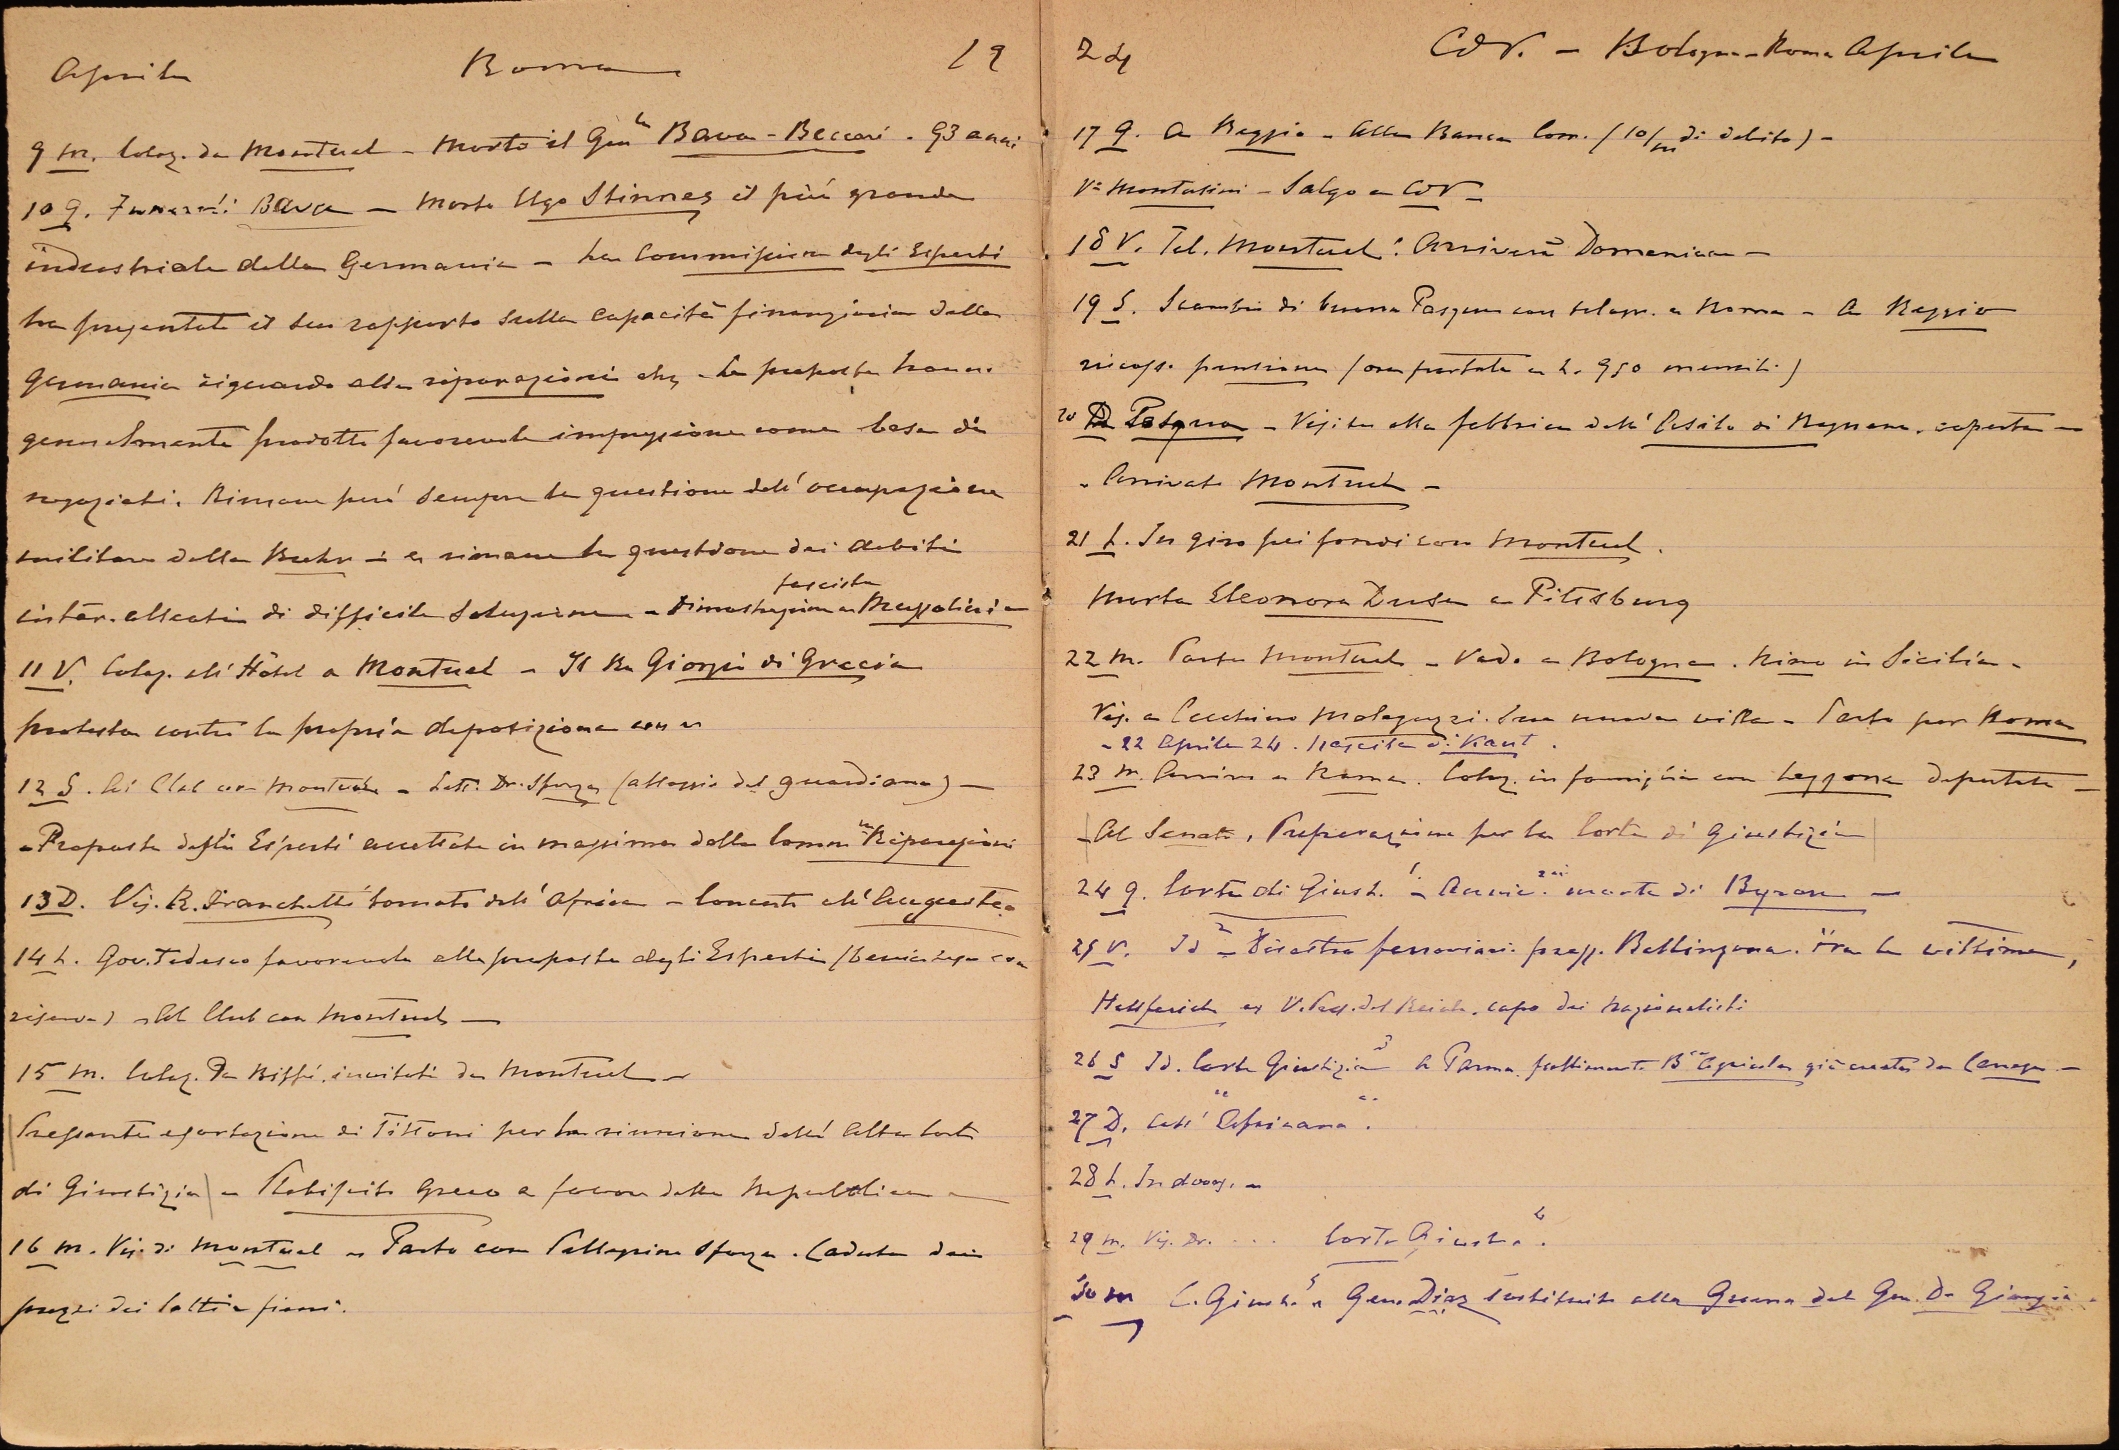 Aprile Roma 19
9 m. Colaz. da Montuel – Morto il Gen.le Bava-Beccari. 93 anni
10 g. Funerali Bava – Morto Ugo Stinnes il più grande
industriale della Germania – La Commissione degli Esperti
ha presentato il suo rapporto sulla capacità finanziaria della
Germania riguardo alle riparazioni etc. – Le proposte hanno
generalmente prodotto favorevole impressione come base di
negoziati. Rimane però sempre la questione dell'occupazione
militare della Ruhr – e rimane la questione dei debiti
fascista
inter.alleati di difficile soluzione – Dimostrazione a Mussolini –
11 V. Colaz. all'Hôtel a Montuel – Il Re Giorgio di Grecia
protesta contro la propria deposizione
12 S. Al Club con Montuel – Lett. Dr. Sforza (alloggio del guardiano) –
– Proposte degli Esperti accettate in massima dalla Comm.ne Riparazioni
13 D. Vis. R. Franchetti tornato dall'Africa – Concerto all'Augusteo
14 L. Gov. Tedesco favorevole alle proposte degli Esperti (benchè con
riserve) – Al Club con Montuel –
15 m. Colaz. Da Biffi, invitati da Montuel –
Pressante esortazione di Tittoni per la riunione dell'Alta Corte
di Giustizia – Plebiscito Greco a favore della Repubblica –
16 m. Vis. di Montuel – Parto con Pellegrino Sforza. Caduta dei
prezzi dei latti e fieni.
24 CdV. – Bologna – Roma Aprile
17 g. A Reggio – Alla Banca Com. (10/m di debito) –
Va Montasini – Salgo a CdV –
18 V. Tel. Montuel: Arriverà Domenica –
19 S. Scambio di buona Pasqua con telegr. a Roma – A Reggio
riscoss. pensione (ora portata a L. 950 mensili)
20 D Pasqua – Visita alla fabbrica dell'Asilo di Regnano, coperta –
– Arrivato Montuel –
21 L. In giro pei fondi con Montuel.
Morta Eleonora Duse a Pittsburg
22 m. Parte Montuel – Vado a Bologna. Nino in Sicilia –
Vis. a Cecchino Malaguzzi. Sua nuova villa – Parto per Roma
– 22 Aprile 24. Nascita di Kant.
23 m. Arrivo a Roma. Colaz. in famiglia con Lezzona deputato –
– Al Senato, Preparazione per la Corte di Giustizia
24 g. Corte di Giust. 1 – Anniv. morte di Byron –
25 V. Id 2 – Disastro ferroviario press. Bellinzona. Fra le vittime,
Helfferich ex V. Pres. del Reich, capo dei nazionalisti
26 S Id. Corte Giustizia 3 A Parma fallimento B.ca Agricola già creata da Canega –
27 D. "Africana".
28 L.
29 m. Vis. Dr. . . . Corte Giust.a 4.
30 m C. Giust. 5 – Gen. Diaz sostituito alla Guerra dal Gen. Di Giorgio –